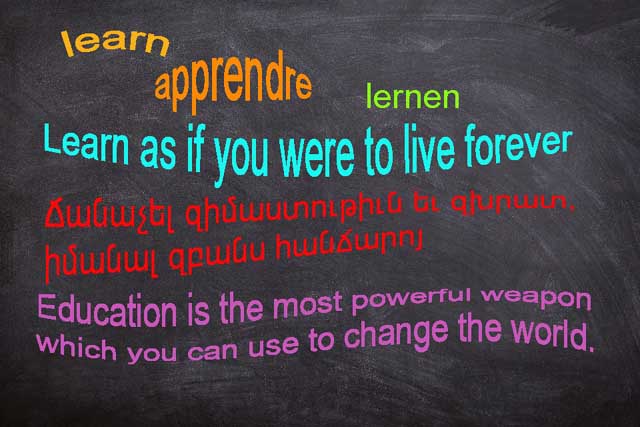 learn
apprendre
lernen
Learn as if you were to live forever
Ճանաչել զիմաստութիւն եւ զխրատ,
իմանալ զբանս հանճարոյ
Education is the most powerful weapon
which you can use to change the world.